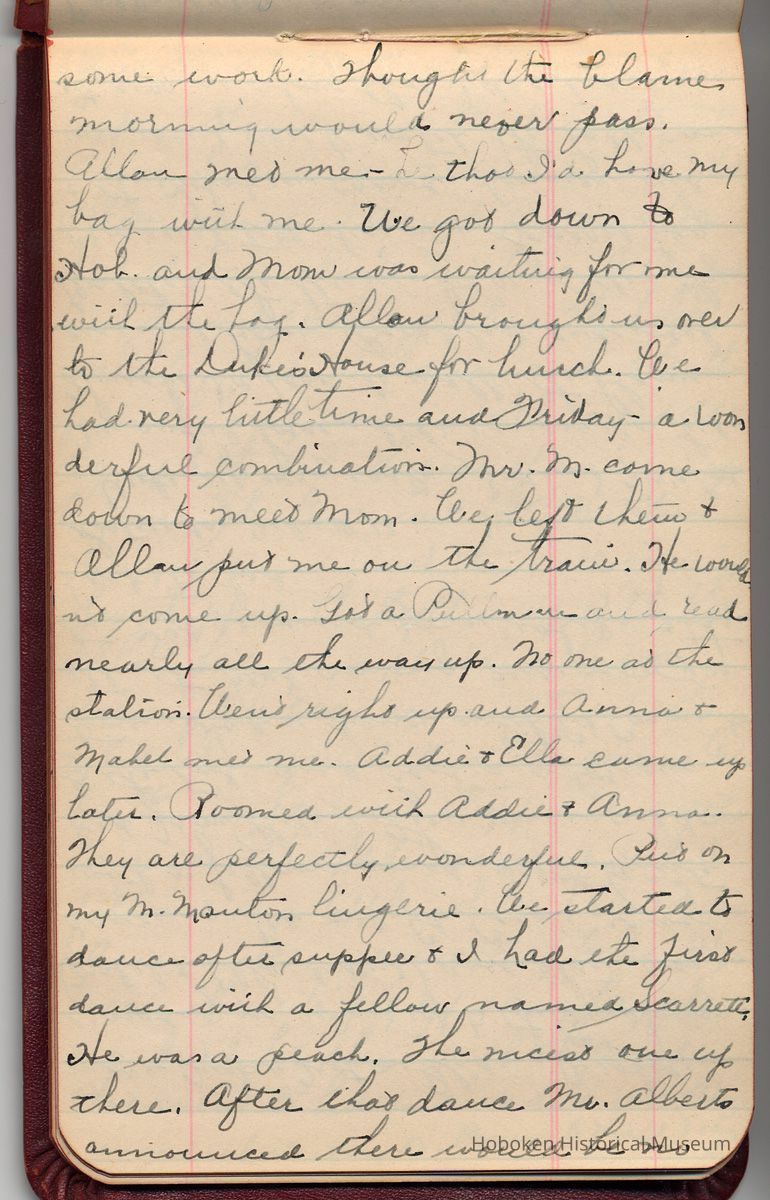 some work. Thought the blame
morning would never pass.
Allan met me - he tho't I'd have my
bag with me. We got down to
Hob. and Mom was waiting for me
with the bag. Allan brought us over
to the Duke's House for lunch. We
had very little time and Friday - a won
derful combination. Mr. M. came
down to meet Mom. We left them &
Allan put me on the train. He would
n't come up. Got a Pullman and read
nearly all the way up. No one at the
station. Went right up and Anna &
Mabel met me. Addie & Ella came up
later. Roomed with Addie & Anna.
They are perfectly wonderful. Put on
my M. lingerie. We started to
dance after supper & I had the first
dance with a fellow named Scarrett.
He was a peach. The nicest one up
there. After that dance Mr. Alberts
announced there would be no
Hoboken Historical Museum